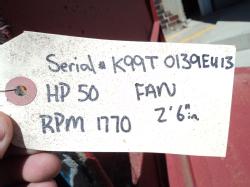 Serial# K99T 0139E413
HP 50 FAN
RPM 1770 2'6"in